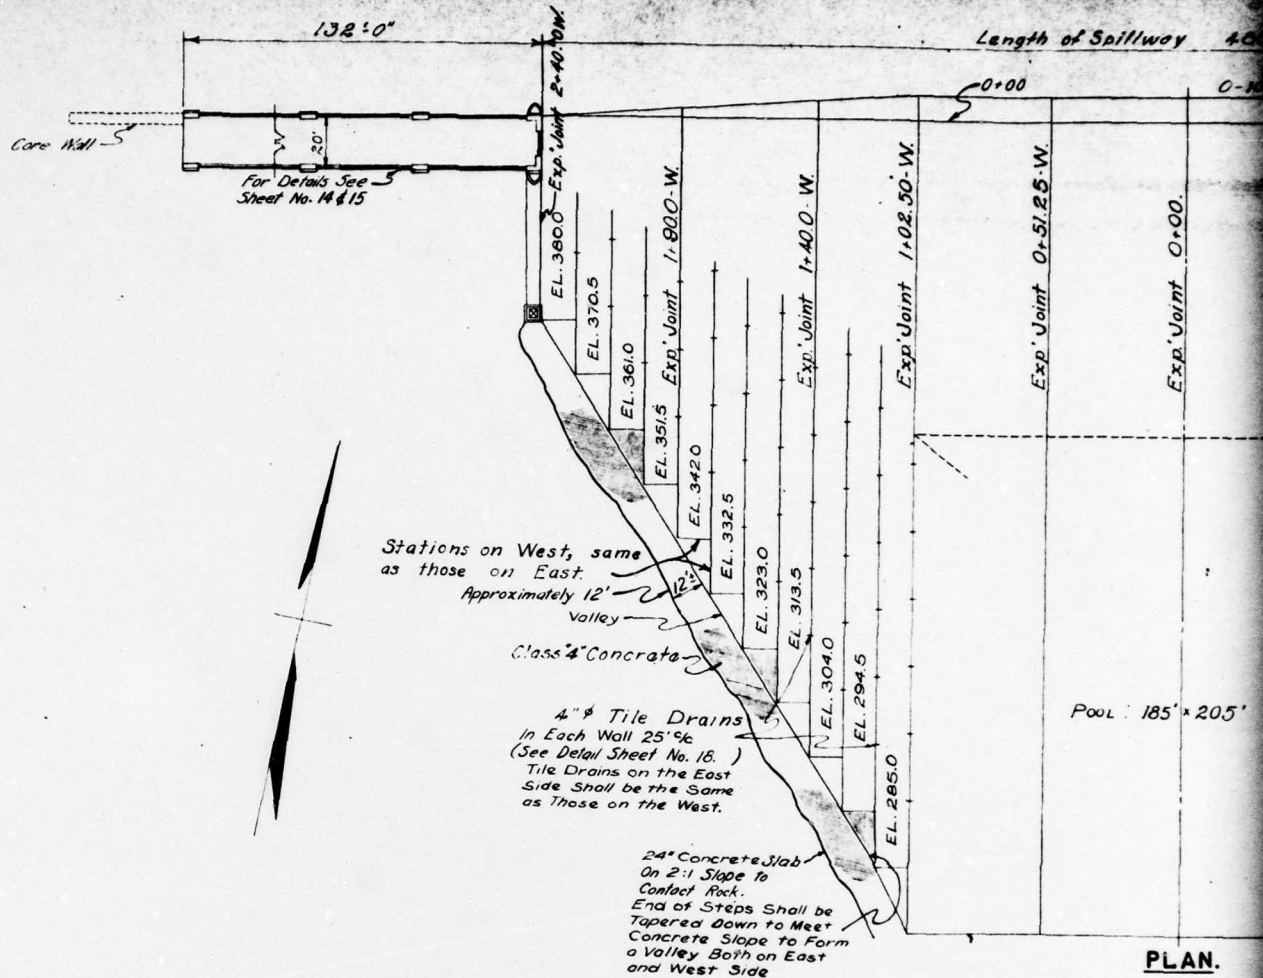 132'-0"
Length of Spillway
0+00
Core Wall
20'
For Details See
Sheet No. 14 & 15
Exp. Joint 2+40.0W.
EL. 380.0
EL. 370.5
EL. 361.0
EL. 351.5
Exp. Joint 1+80.0-W.
EL. 342.0
EL. 332.5
EL. 323.0
EL. 313.5
Exp. Joint 1+40.0-W.
EL. 304.0
EL. 294.5
EL. 285.0
Exp. Joint 1+02.50-W.
Exp. Joint 0+51.25-W.
Exp. Joint 0+00.
Stations on West, same
as those on East.
Approximately 12'
12'±
Valley
Class "4" Concrete
4"φ Tile Drains
In Each Wall 25' c/c
(See Detail Sheet No. 16. )
Tile Drains on the East
Side Shall be the Same
as Those on the West.
POOL : 185' x 205'
24" Concrete Slab
On 2:1 Slope to
Contact Rock.
End of Steps Shall be
Tapered Down to Meet
Concrete Slope to Form
a Valley Both on East
and West Side
PLAN.